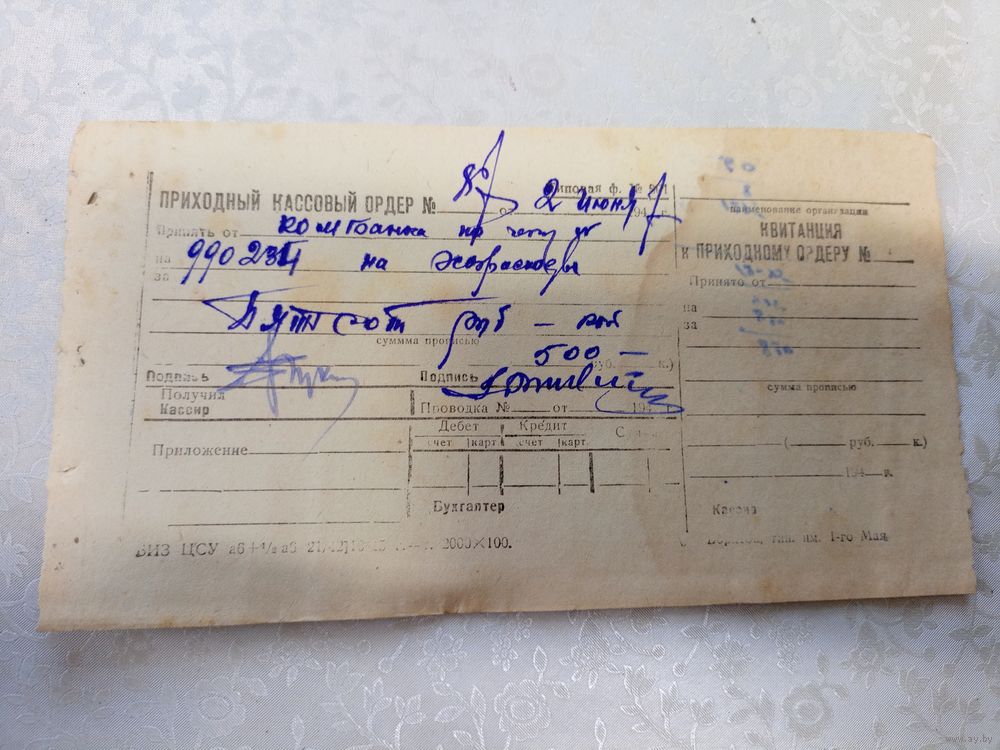 Типовая ф. №
ПРИХОДНЫЙ КАССОВЫЙ ОРДЕР № 87 от 2 июня 1947
Принять от комбанка по чеку №
на 990234 на хозрасходы
за
Пятьсот руб – коп
сумма прописью
500 – руб. к.)
Подпись Подпись
Получил
Кассир
Проводка № от 194 г.
Дебет Кредит
счет карт. счет карт.
Приложение
Бухгалтер
ВИЗ ЦСУ 2000×100.
наименование организации
КВИТАНЦИЯ
к ПРИХОДНОМУ ОРДЕРУ №
Принято от
на
за
сумма прописью
( руб. к.)
194 г.
Кассир
тип. им. 1-го Мая
www.ay.by